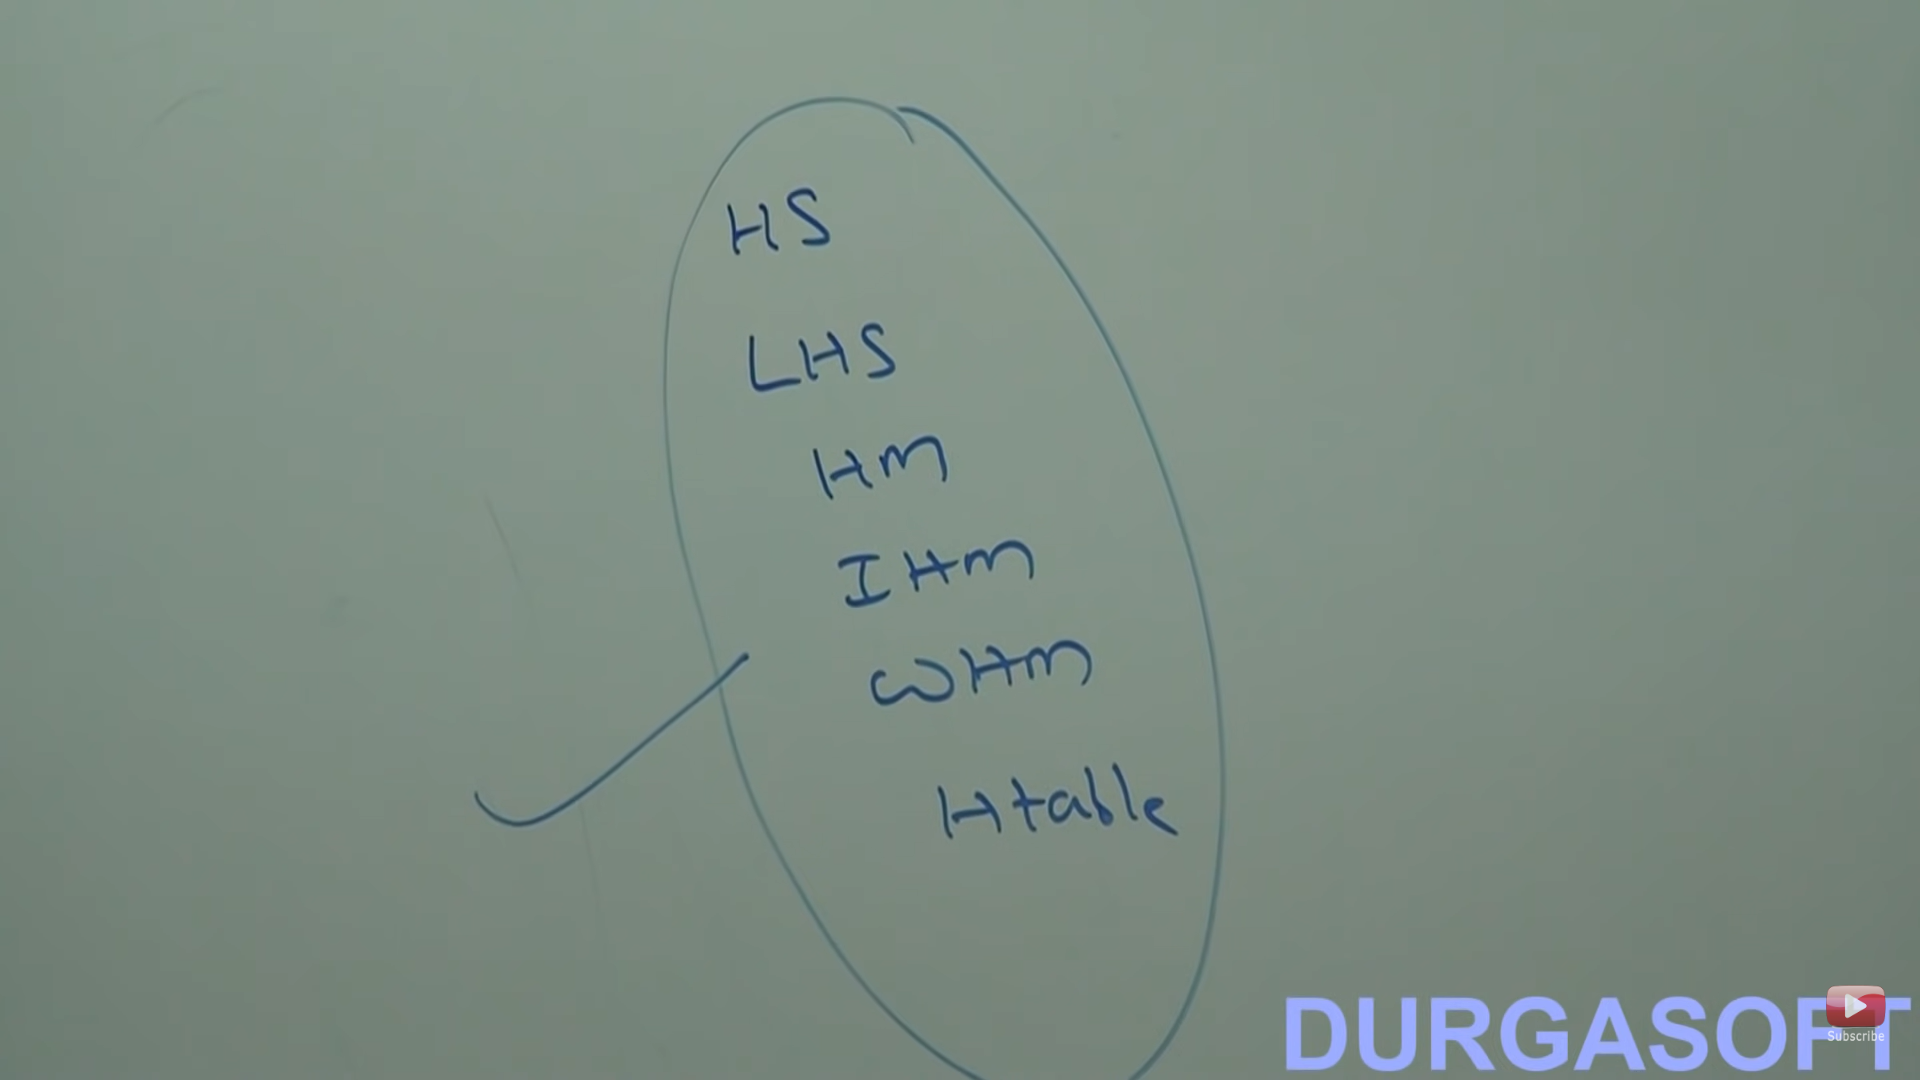 HS
LHS
HM
IHM
WHM
Htable
DURGASOFT
Subscribe